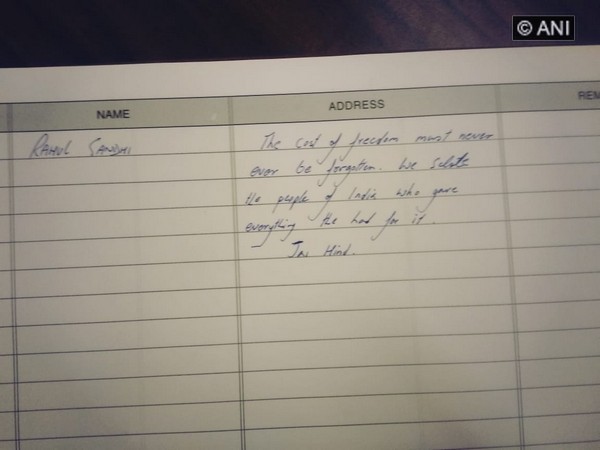 © ANI
NAME
ADDRESS
REM
RAHUL GANDHI
The cost of freedom must never
ever be forgotten. We Salute
the people of India who gave
everything the had for it.
Jai Hind.